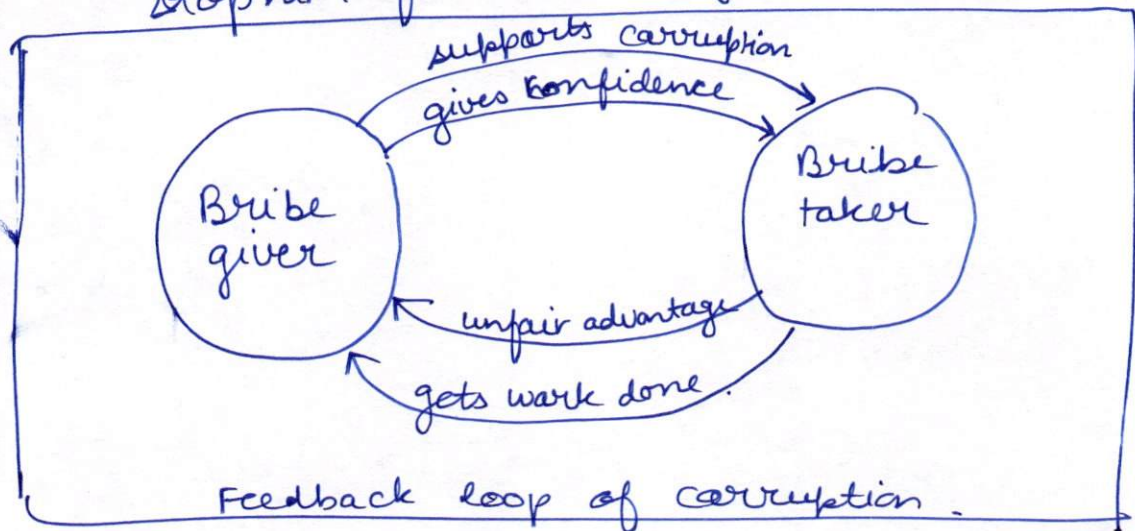 supports carruption
gives confidence
Bribe
giver
Bribe
taker
unfair advantage
gets work done.
Feedback loop of corruption.